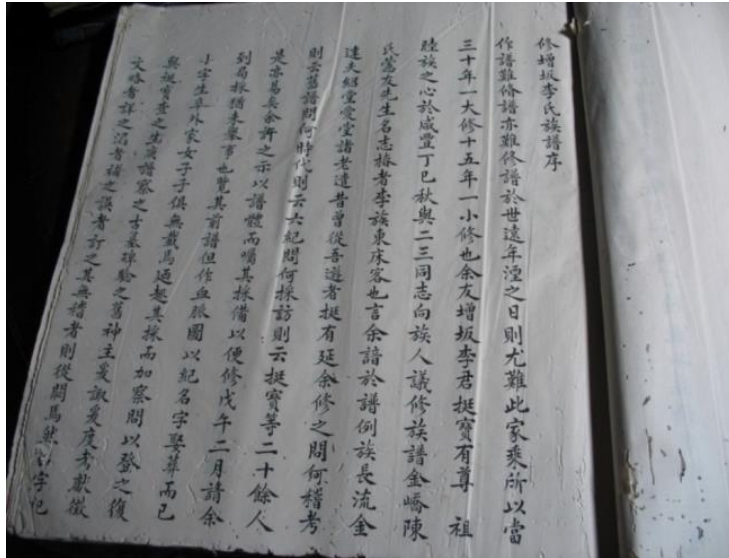 修增坂李氏族譜序
作譜難修譜亦難修譜於世遠年湮之日則尤難此家乘所以當
三十年一大修十五年一小修也余友增坂李君挺寶有尊 祖
睦族之心於咸豐丁巳秋與二三同志向族人議修族譜金嶠陳
氏蒿友先生名志椿者李族東床客也言余諳於譜例族長流金
達夫紹堂愛堂諸老遣昔曾從吾遊者挺有延余修之問何稽考
則云舊譜問何時代則云六紀問何採訪則云挺寶等二十餘人
是亦易矣余許之示以譜體而囑其採備以便修戊午二月請余
到局採猶未舉事也覽其前譜但作血脈圖以紀名字娶葬而已
小字生卒外家女子子俱無載焉廼趣其採而加察問以登之復
與挺寶查之生庚譜察之古墓碑驗之舊神主爰諏爰度考獻徵
文略者詳之漏者補之誤者訂之其無稽者則從闕焉